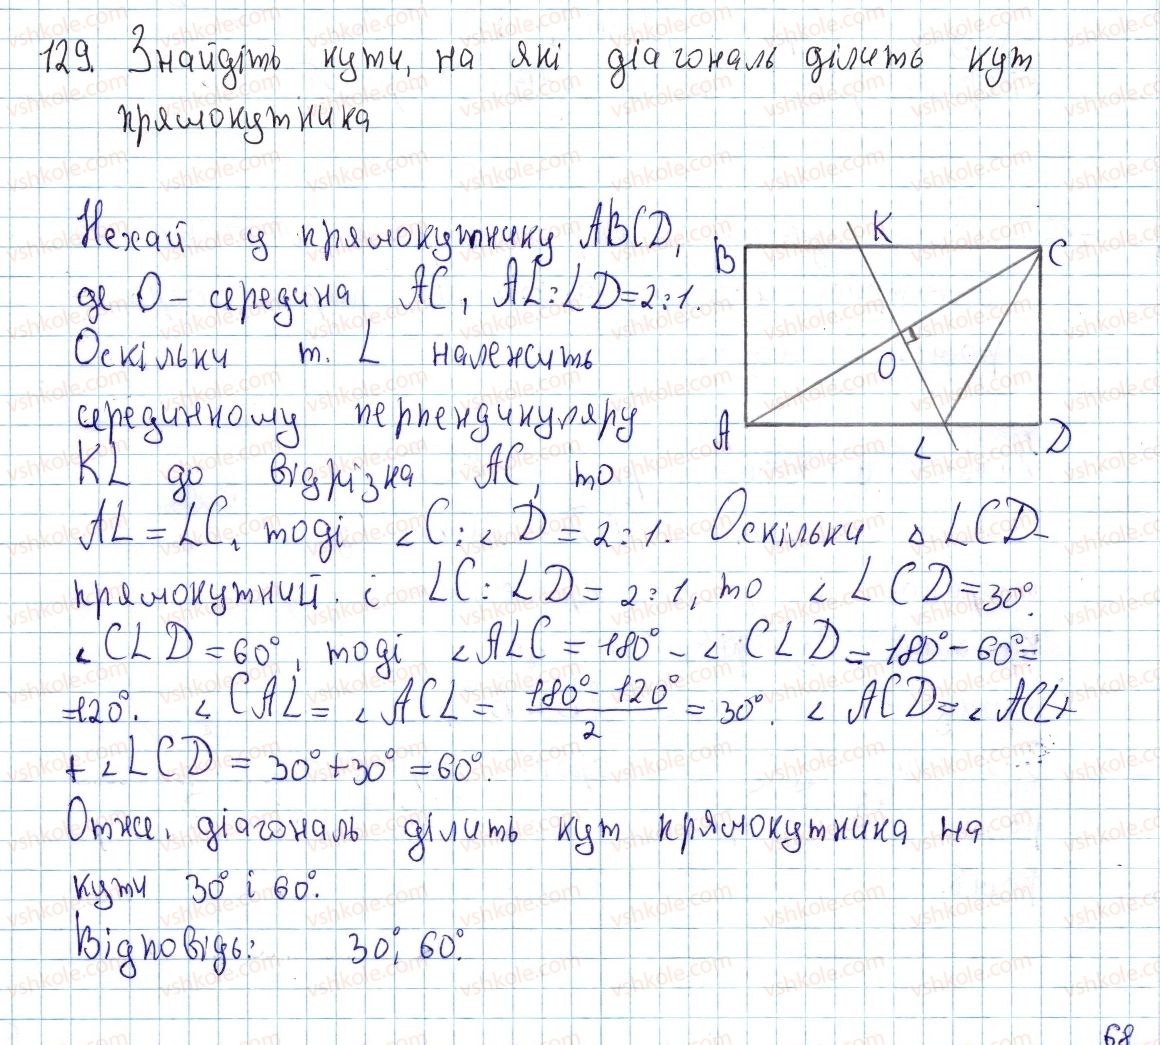 129. Знайдіть кути, на які діагональ ділить кут
прямокутника
Нехай у прямокутнику ABCD,
де O – середина AC, AL:LD=2:1.
Оскільки т. L належить
серединному перпендикуляру
KL до відрізка AC, то
AL = LC, тоді ∠C:∠D=2:1. Оскільки △LCD-
прямокутний. і LC:LD=2:1, то ∠LCD=30°.
∠CLD=60°, тоді ∠ALC=180°-∠CLD=180°-60°=
=120°. ∠CAL=∠ACL= (180°-120°)/2 =30°. ∠ACD=∠ACL+
+∠LCD=30°+30°=60°.
Отже, діагональ ділить кут прямокутника на
кути 30° і 60°.
Відповідь: 30°; 60°.
B K C
O
A L D
68
vshkole.com